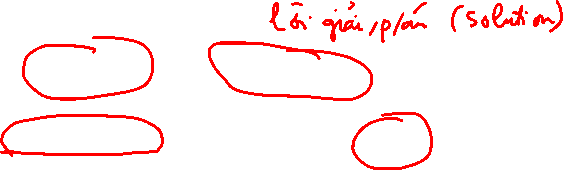 lời giải, p/án (solution)